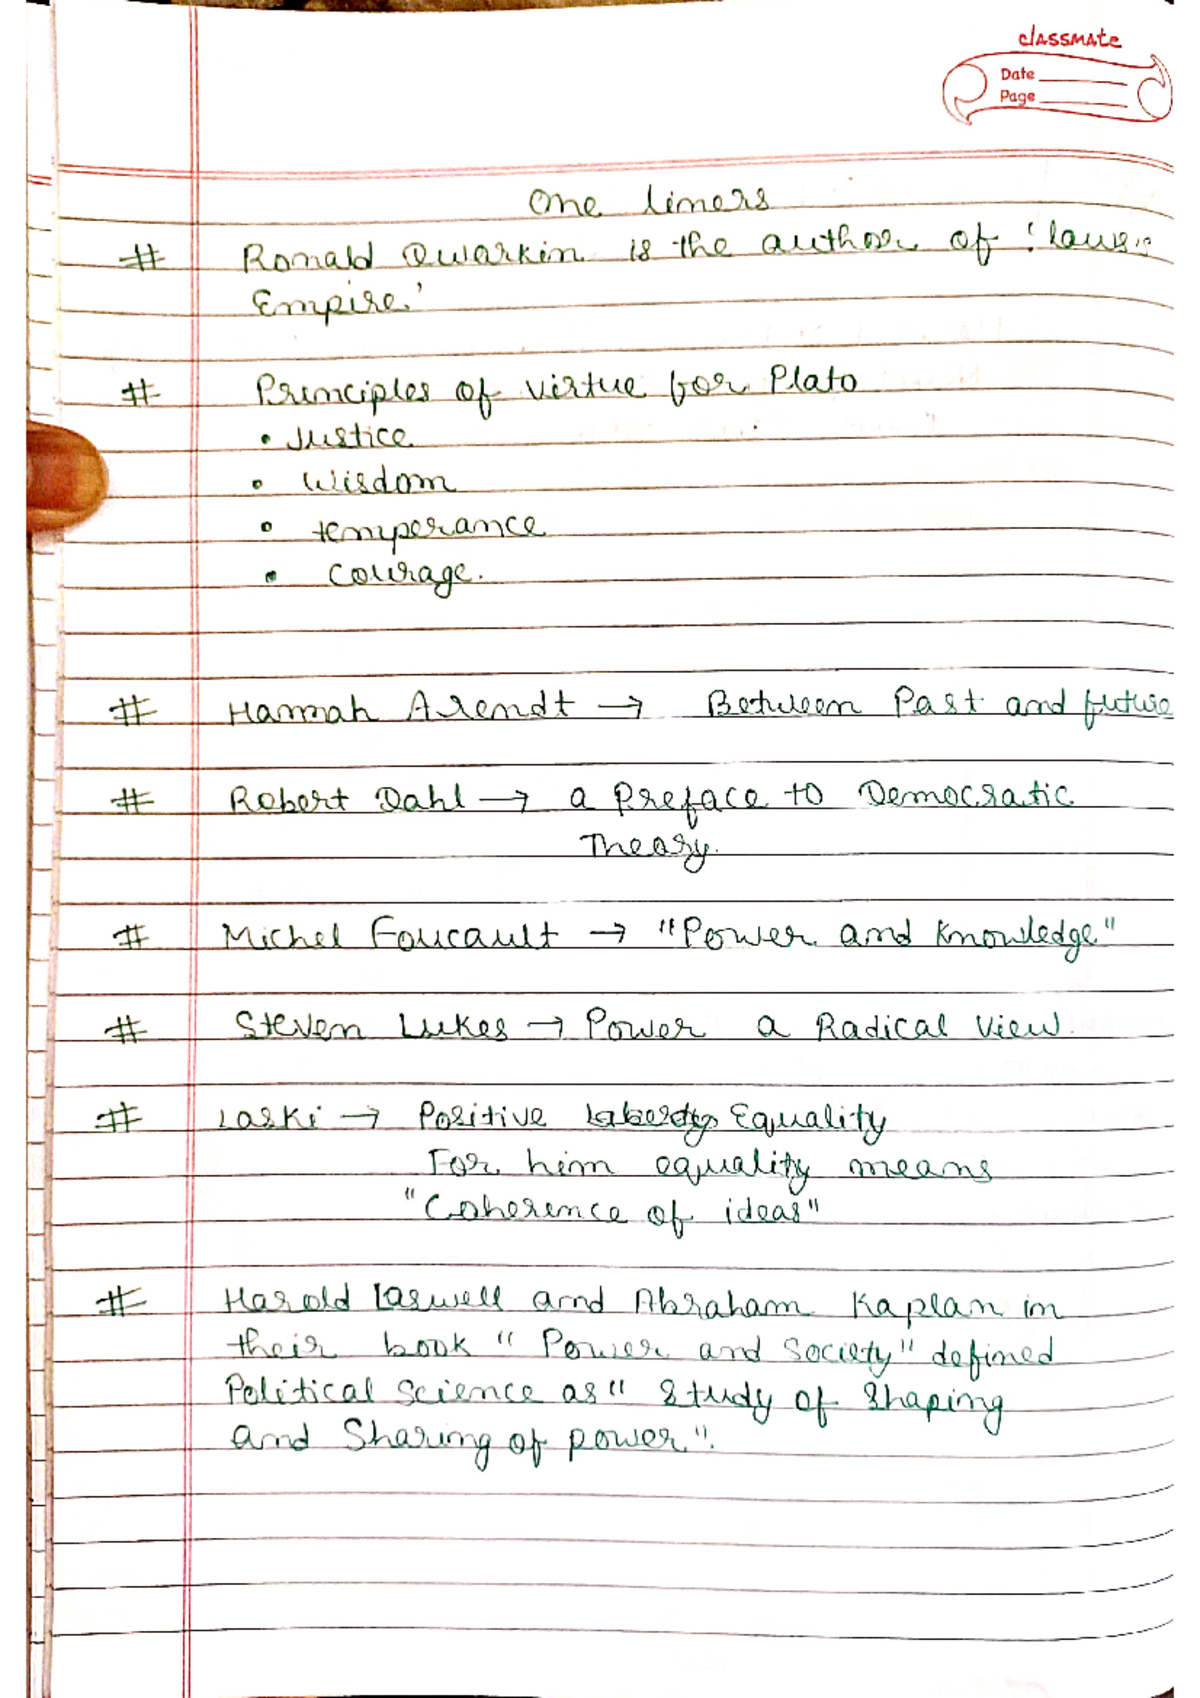 classmate
Date
Page
One liners
# Ronald Dwarkin is the author of 'laws
Empire.'
# Principles of virtue for Plato
• Justice
• Wisdom
• temperance
• Courage.
# Hannah Arendt → Between Past and future
# Robert Dahl → a Preface to Democratic
Theory.
# Michel Foucault → "Power and Knowledge"
# Steven Lukes → Power a Radical View.
# Laski → Positive Equality
For him equality means
"Coherence of ideas"
# Harold Laswell and Abraham Kaplan in
their book "Power and Society" defined
Political Science as "Study of Shaping
and Sharing of power".